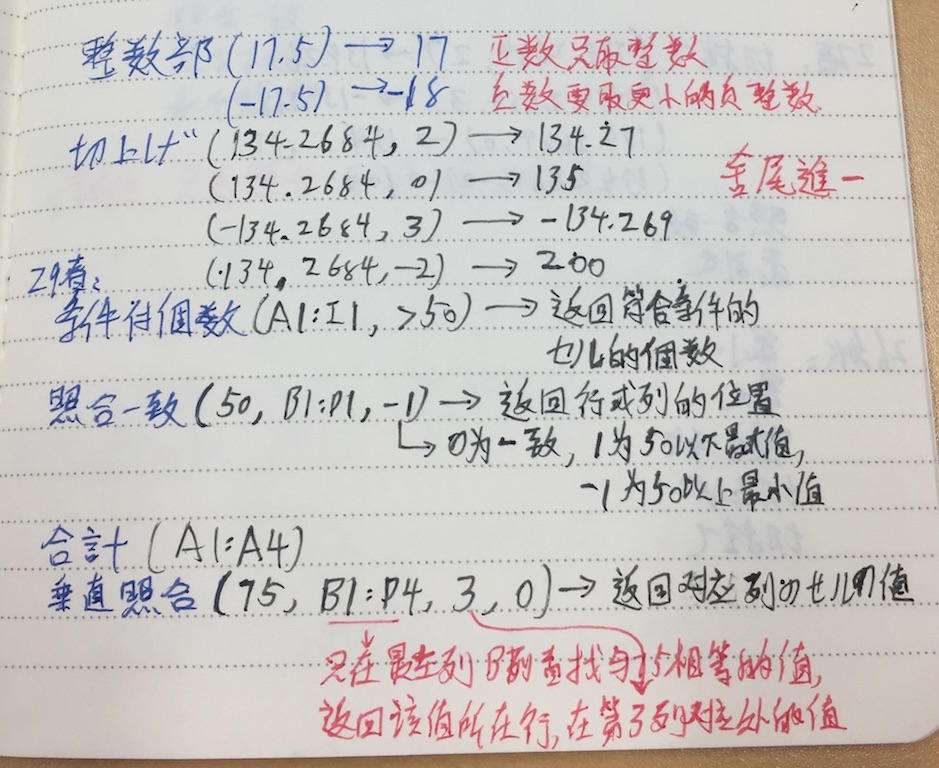 整数部(17.5) → 17 正数只取整数
(-17.5) → -18 负数要取更小的负整数
切上げ(134.2684, 2) → 134.27
(134.2684, 0) → 135 舍尾進一
(-134.2684, 3) → -134.269
(134.2684, -2) → 200
29春:
条件付個数(A1:I1, >50) → 返回符合条件的
セル的個数
照合一致(50, B1:P1, -1) → 返回行或列的位置
↳ 0为一致, 1为50以下最大值,
-1为50以上最小值
合計(A1:A4)
垂直照合(75, B1:P4, 3, 0) → 返回对应列のセルの值
只在最左列B列查找与75相等的值,
返回该值所在行,在第3列对应处的值